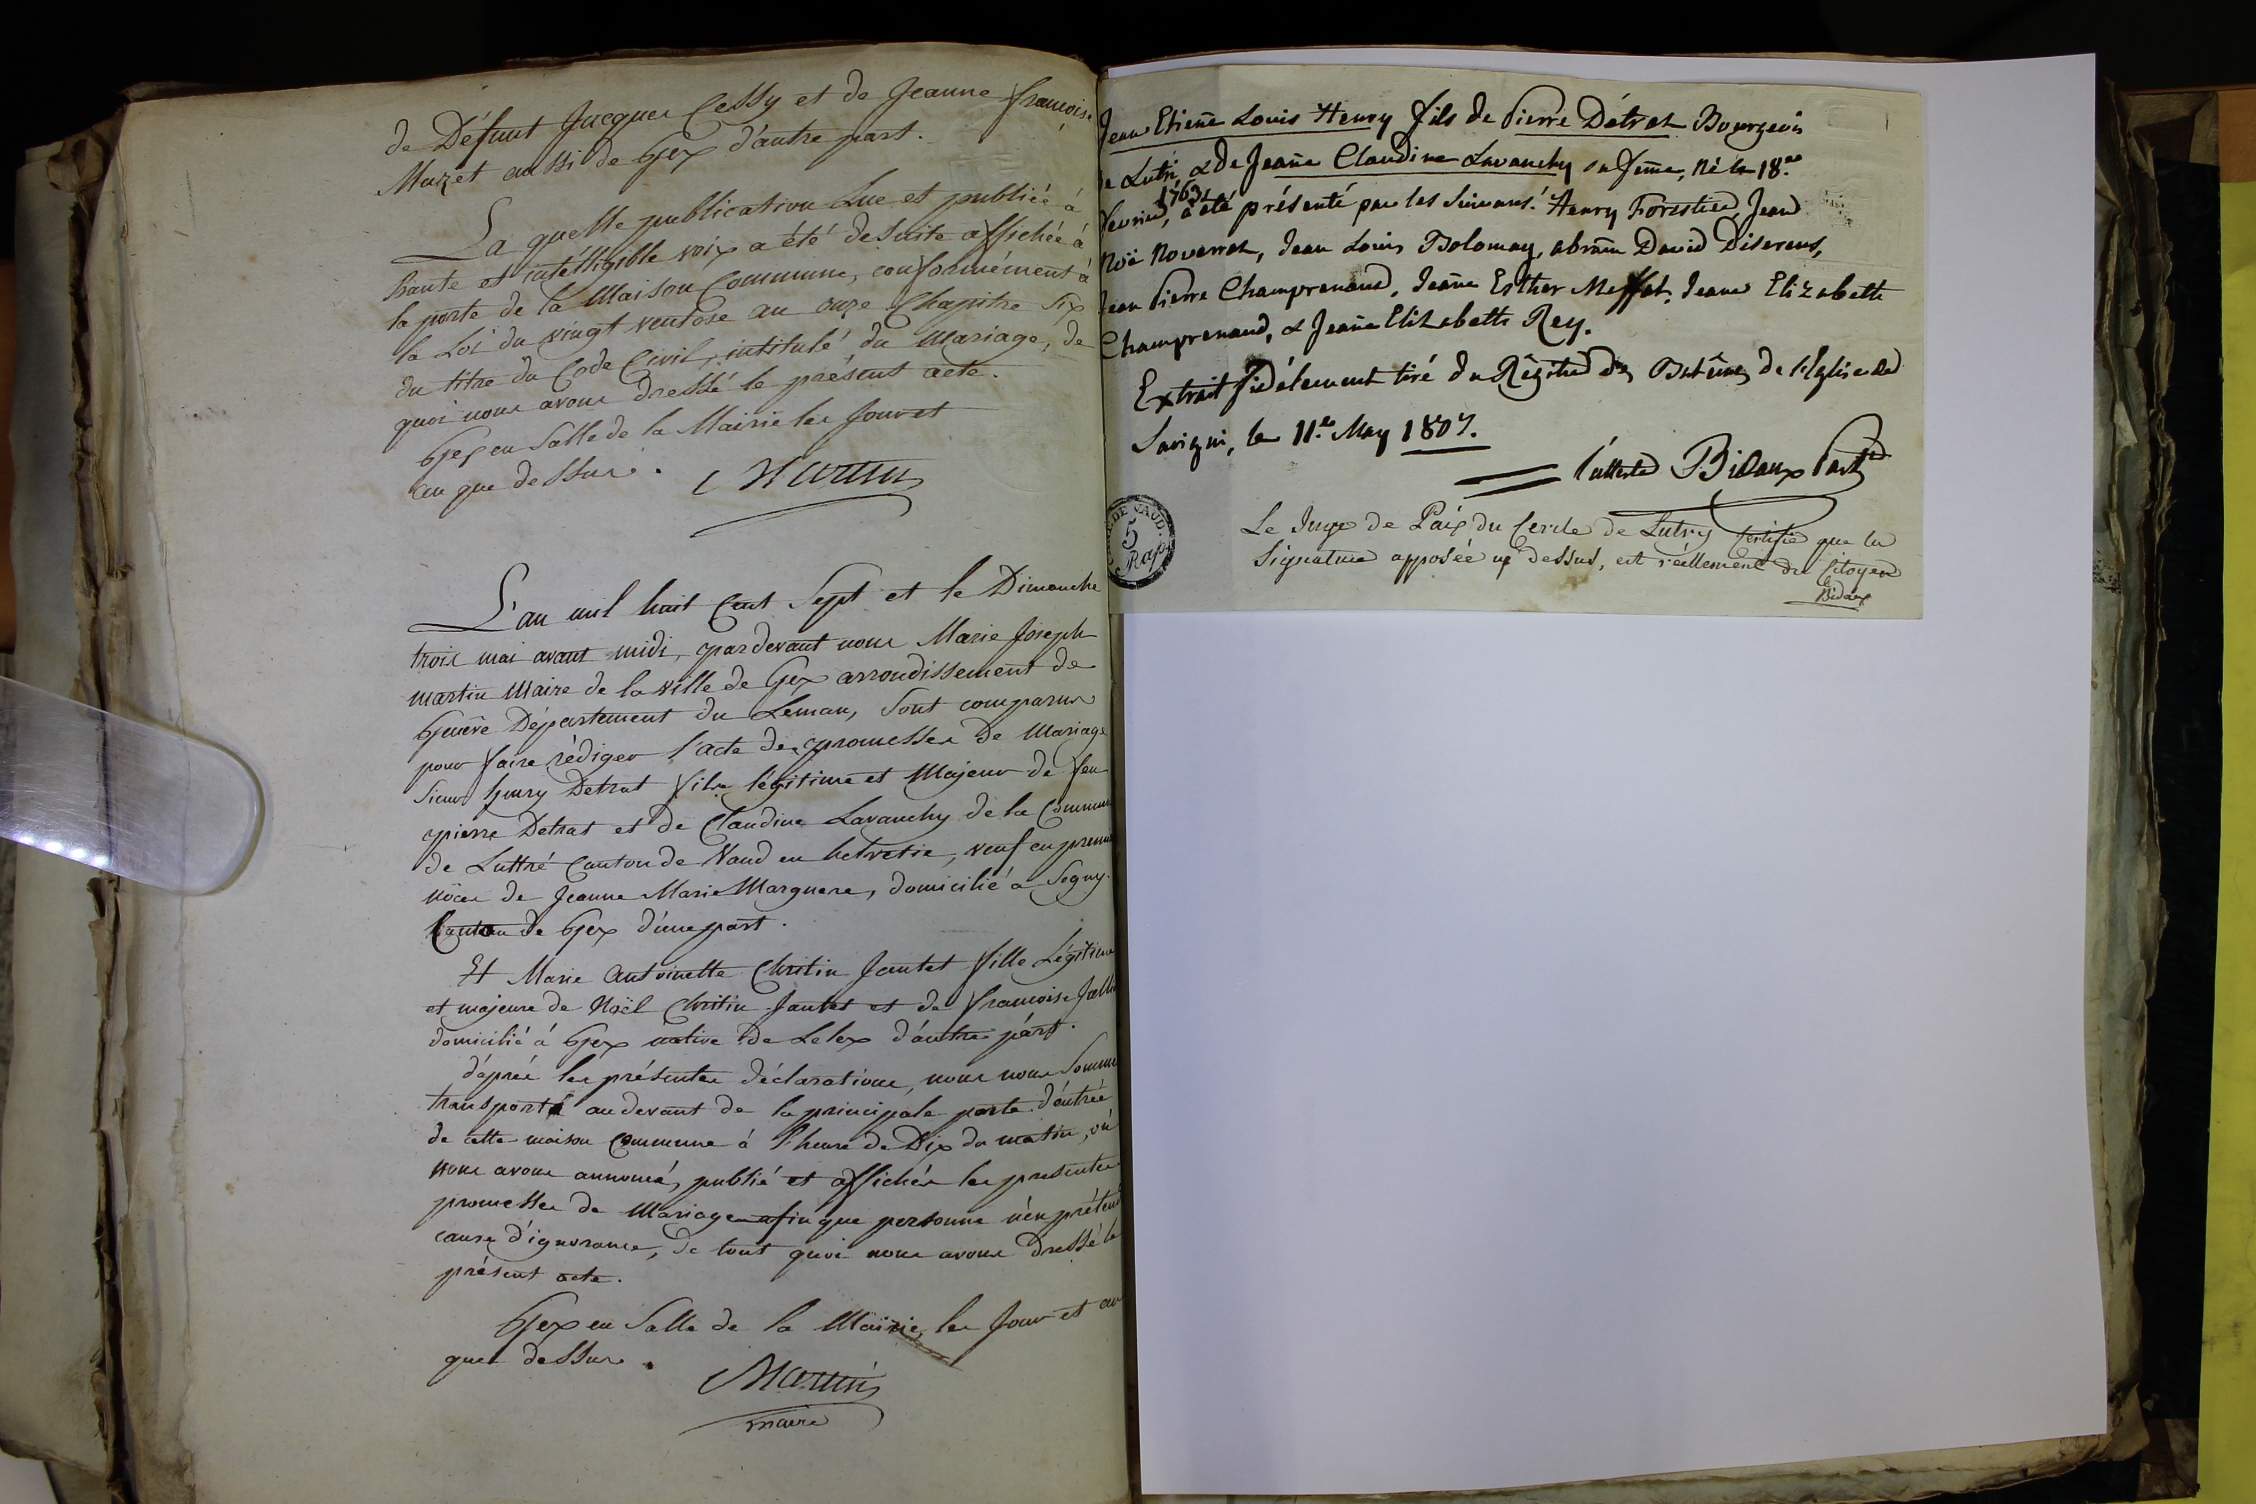 de Défunt Jacques Cessy et de Jeanne françoise
Mazet aussi de Gex d'autre part.
La quelle publication Lue et publiée à
haute et intélligible voix a été desuite affichée à
la porte de la Maison Commune, conformément à
la Loi du vingt ventose an onze Chapitre Six
du titre du Code Civil, intitulé du Mariage, de
quoi nous avons dressé le présent acte.
Gex en Salle de la Mairie les Jour et
an que dessus.
Martin
L'an mil huit Cent Sept et le Dimanche
trois mai avant midi, pardevant nous Marie Joseph
Martin Maire de la ville de Gex arrondissement de
Genève Département du Leman, Sont comparus
pour faire rédiger l'acte de promesses de Mariage
Sieur henry Detrat fils légitime et Majeur de feu
pierre Detrat et de Claudine Lavanchy de la Commune
de Luttré Canton de Vaud en helvetie, veuf en premi
nôces de Jeanne Marie Marguere, domicilié a Segny
Canton de Gex d'une part.
Et Marie Antoinette Chritin Jantet fille Légitime
et majeure de Noël Chritin Jantet et de françoise
domicilié à Gex native de Lelex d'autre part.
d'après les présentes déclarations, nous nous Somme
transporté au devant de la principale porte d'entrée
de cette maison Commune à l'heure de Dix du matin, où
nous avons annoncé, publié et affichés les presentes
promesses de Mariage afin que personne n'en prétend
cause d'ignorance, de tout quoi nous avons dressé le
présent acte.
Gex en Salle de la Mairie, les Jour et an
que dessus.
Martin
maire
Jean Etienẽ Louis Henry fils de Pierre Détraz Bourgeois
de Lutri & de Jeañe Claudine Lavanchy sa feme, Né le 18.
fevrier, 1763, a été présenté par les Suivans: Henry Forestier, Jean
Noé Noverraz, Jean Louis Bolomay, abrãm David Diserens,
Jean Pierre Champrenaud, Jeañe Esther Meffet, Jeane Elizabeth
Champrenaud, & Jeañe Elizabeth Rey.
Extrait fidélement tiré du Régitre des Batêmes de l'Eglise de
Savigni, le 11.e May 1807.
l'atteste Bidaux Past
CANT. DE VAUD.
5
Rap.
Le Juge de Paix du Cercle de Lutry Certifie que la
Signature apposée cy dessus, est réellement du Citoyen
Bidaux